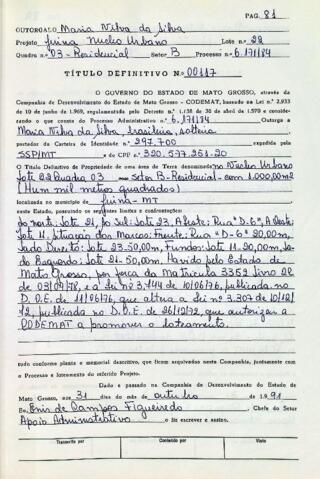 PAG. 81
OUTORGADO Maria Nilva da Silva
Projeto Juina Nucleo Urbano Lote n.o 22
Quadra n.o 03 - Residencial Setor B Processo n.o 6.171/84
TÍTULO DEFINITIVO N.o 00117
O GOVERNO DO ESTADO DE MATO GROSSO, através da
Companhia de Desenvolvimento do Estado de Mato Grosso - CODEMAT, baseado na Lei n.o 2.933
de 10 de junho de 1.969, regulamentada pelo Decreto n.o 1.138 de 30 de abril de 1.970 e conside-
rando o que consta do Processo Administrativo n.o 6.171/84 Outorga a
Maria Nilva da Silva, brasileira, solteira
portador da Carteira de Identidade n.o 297.700 expedida pela
SSP/MT e de CPF n.o 320.577.251-20
O Título Definitivo de Propriedade de uma área de Terra denominada no Núcleo Urbano
Lote 22 Quadra 03 Setor B-Residencial - com 1.000,00m2
(Hum mil metros quadrados)
localizada no município de Juina - MT
neste Estado, possuindo os seguintes limites e confrontações:
Ao norte: Lote 21, Ao Sul: Lote 23, A Leste: Rua "D-6", A Oeste:
Lote 11. Situação dos Marcos: Frente: Rua "D-6" 20,00m,
Lado Direito: Lote 23-50,00m, Fundos: Lote 11-20,00m, La-
do Esquerdo: Lote 21-50,00m. Havido pelo Estado de
Mato Grosso, por força da Matrícula 3352 Livro 2R
de 03/04/78, e a Lei nº 3.744 de 10/06/76, publicada no
D.O.E. de 11/06/76, que altera a Lei nº 3.307 de 10/12/
72, publicada no D.O.E. de 26/12/72, que autorizar a
CODEMAT a promover o loteamento.
tudo conforme planta e memorial descritivo, que ficam arquivados nesta Companhia, juntamente com
o Processo e loteamento do referido Projeto.
Dado e passado na Companhia de Desenvolvimento do Estado de
Mato Grosso, aos 31 dias do mês de outubro de 1.991
Eu, Enir de Campos Figueiredo Chefe do Setor
Apoio Administrativo o fiz escrever e assino.
Transcrito por Conferido por Visto